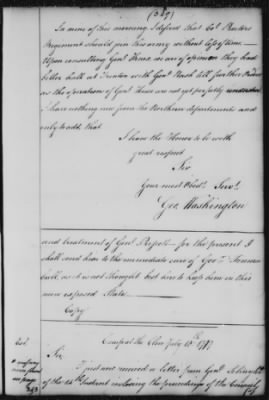 (389)
In mine of this morning I desired that Col. Proctors
Regiment should join this army without loss of time —
Upon consulting Genl. Knox, we are of opinion they had
better halt at Trenton with Genl. Nash till further Orders
as the operations of Genl. Howe are not yet perfectly understood
I have nothing new from the Northern department and
only to add, that
I have the Honor to be with
great respect
Sir
Your most Obedt. Servt.
Geo. Washington
and treatment of Genl. Prescot — for the present I
shall send him to the immediate care of Govr.
but, as it is not thought best to keep him in this
more exposed State —
Copy
Camp at the Clove July 15th 1777
Sir,
I just now received a letter from Genl. Schuyler
of the 14th Instant inclosing the proceedings of the Council